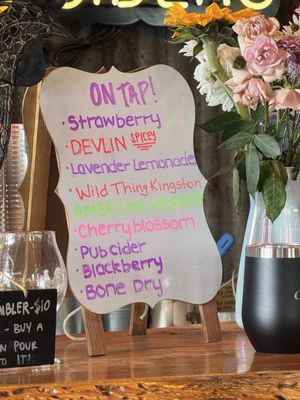 ON TAP!
• Strawberry
• DEVLIN SPICEY
• Lavender Lemonade
• Wild Thing Kingston
AMERICAN
• Cherryblossom
• Pub Cider
• Blackberry
• Bone Dry
MBLER - $10
- BUY A
N POUR
TO IT!